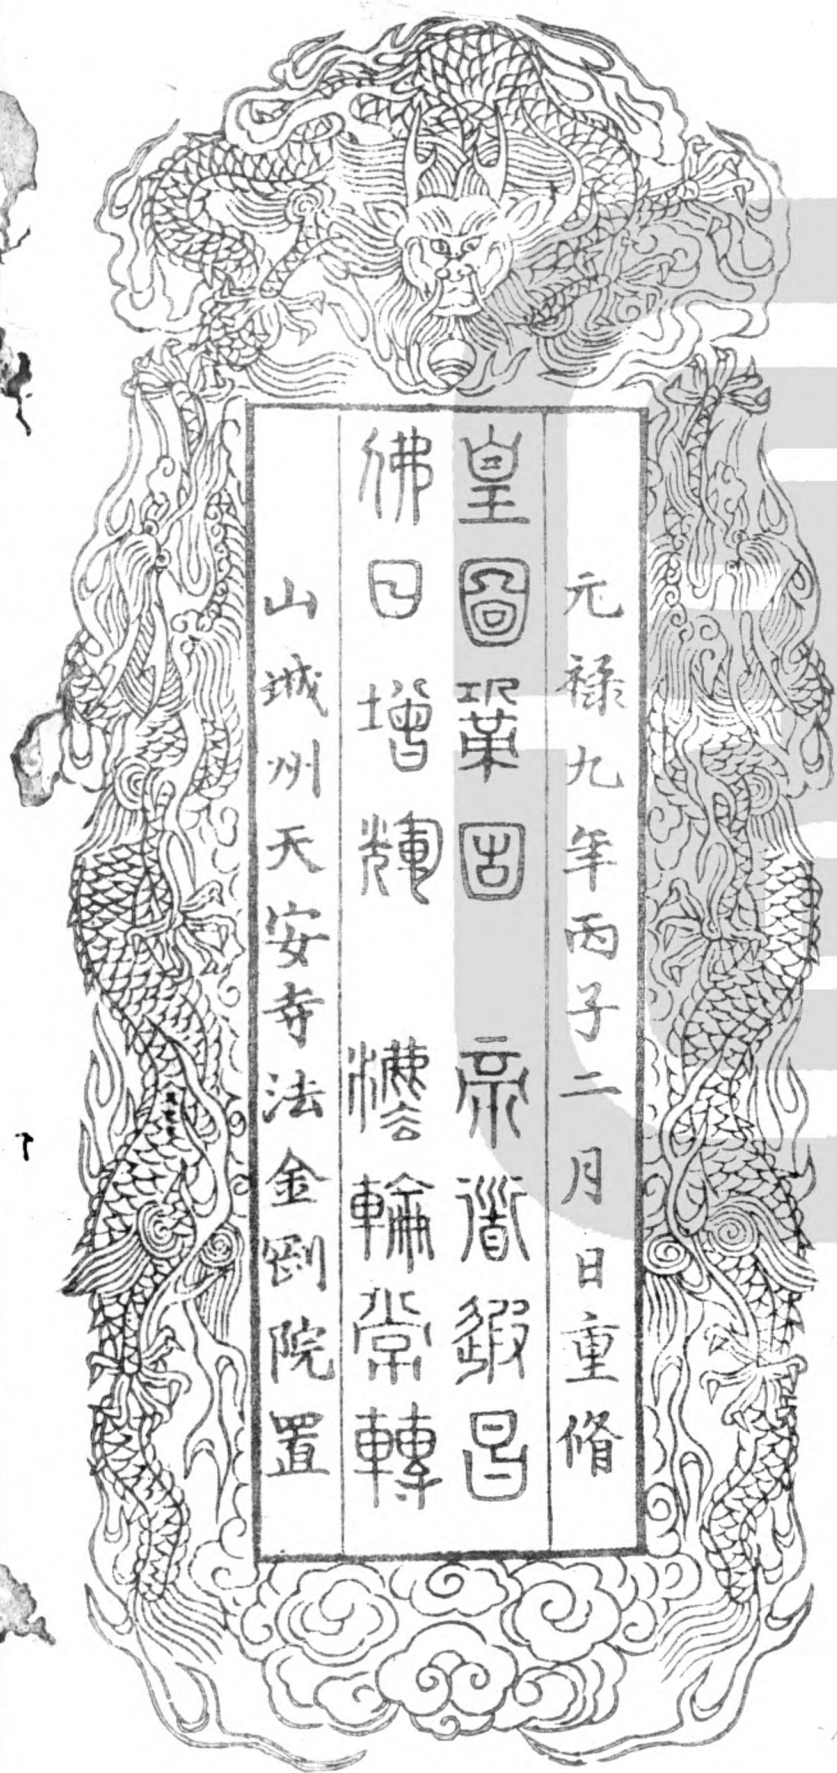 元祿九年丙子二月　日重脩
皇圖鞏固　帝道遐昌
佛日增輝　灋輪常轉
山城州天安寺法金剛院置